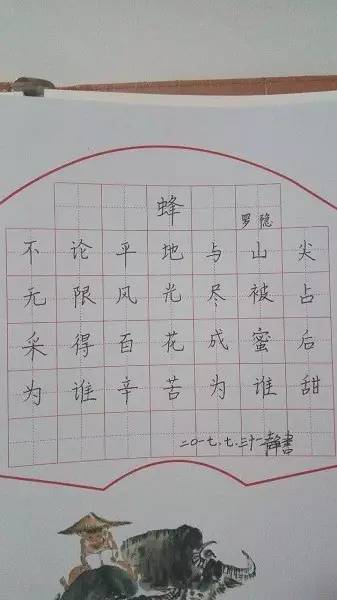 蜂
罗隐
不论平地与山尖
无限风光尽被占
采得百花成蜜后
为谁辛苦为谁甜
二〇一七.七.三十一静书